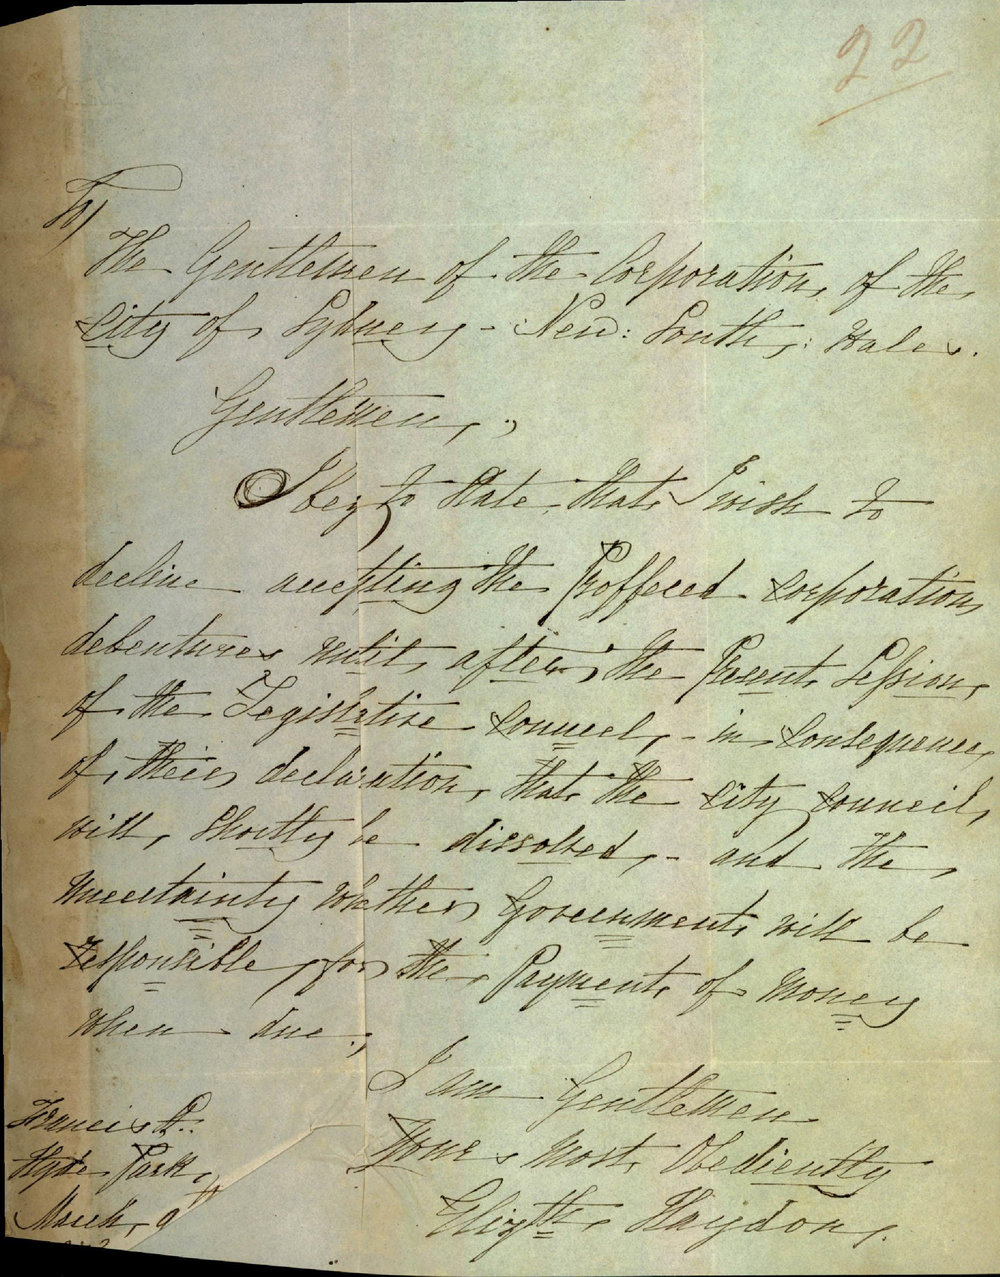 22
To,
The Gentlemen of the Corporation, of the,
City of, Sydney - New: South,: Wales.
Gentlemen,,
I beg to State, that, I wish to
decline accepting the Proffered Corporation,
debentures, until, after, the Present, Session,
of the Legislative Council, - in, Consequence,
of, their, declaration, that, the City Council,
will, Shortly be dissolved, - and the,
uncertainty whether, Government, will be
responsible, for, the, Payment, of money
when due.,
I am Gentlemen
Your, most, Obediently
Elizth, Haydon,.
Francis St.:
Hyde Park,
March, 9th